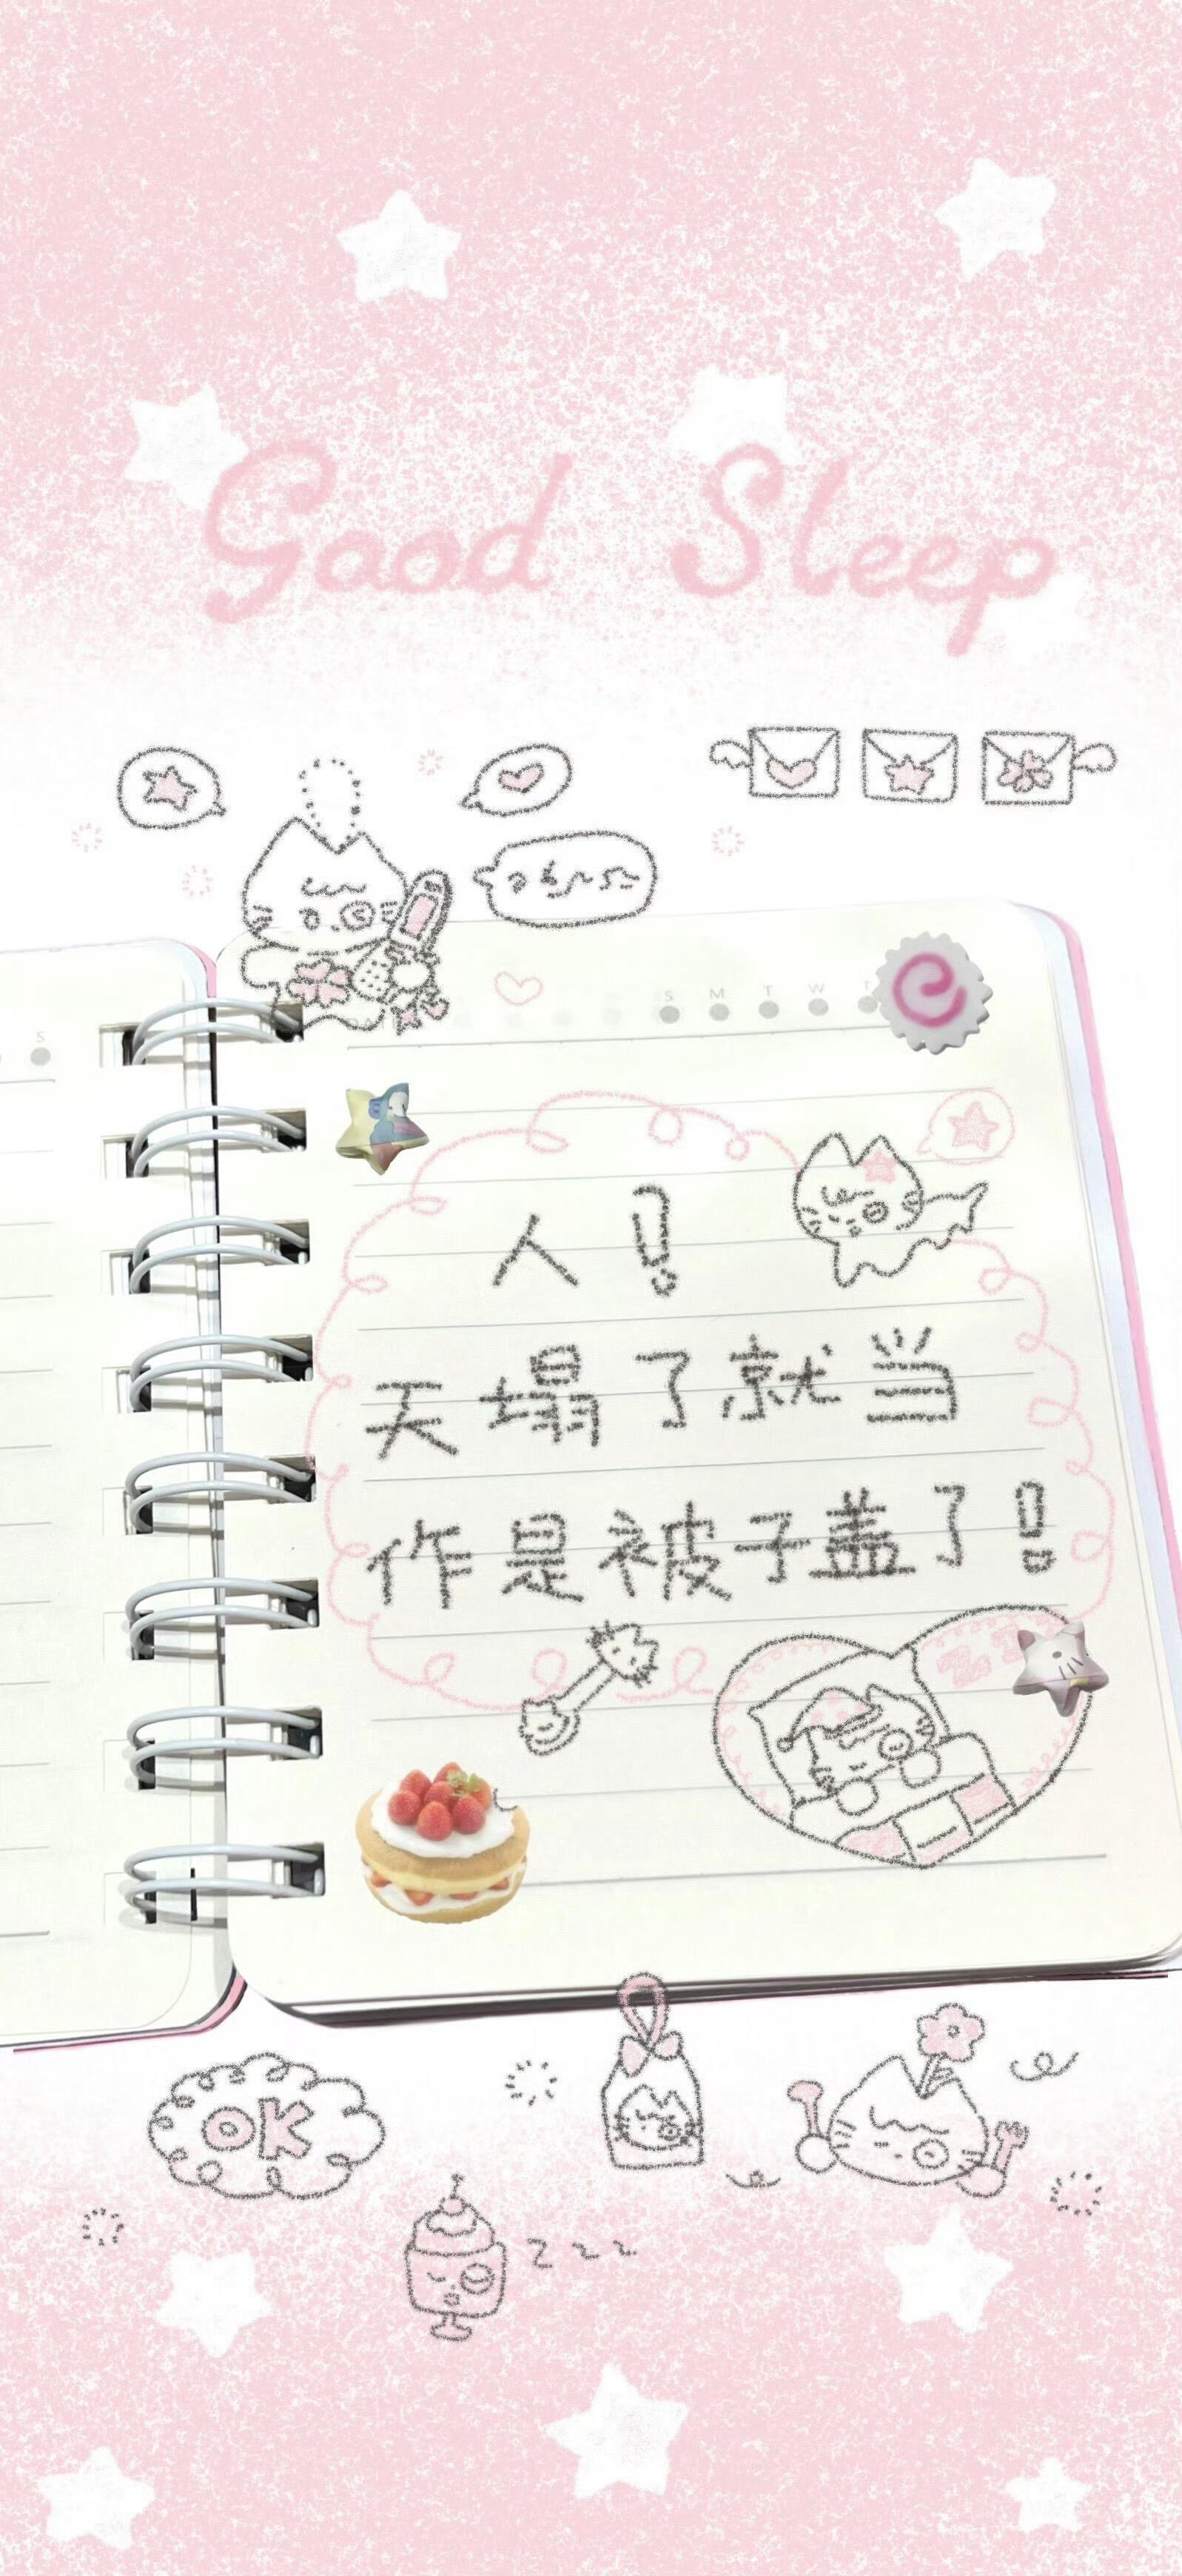 Good Sleep
S M T W T
S
人!
天塌了就当
作是被子盖了!
zz
OK
z z z